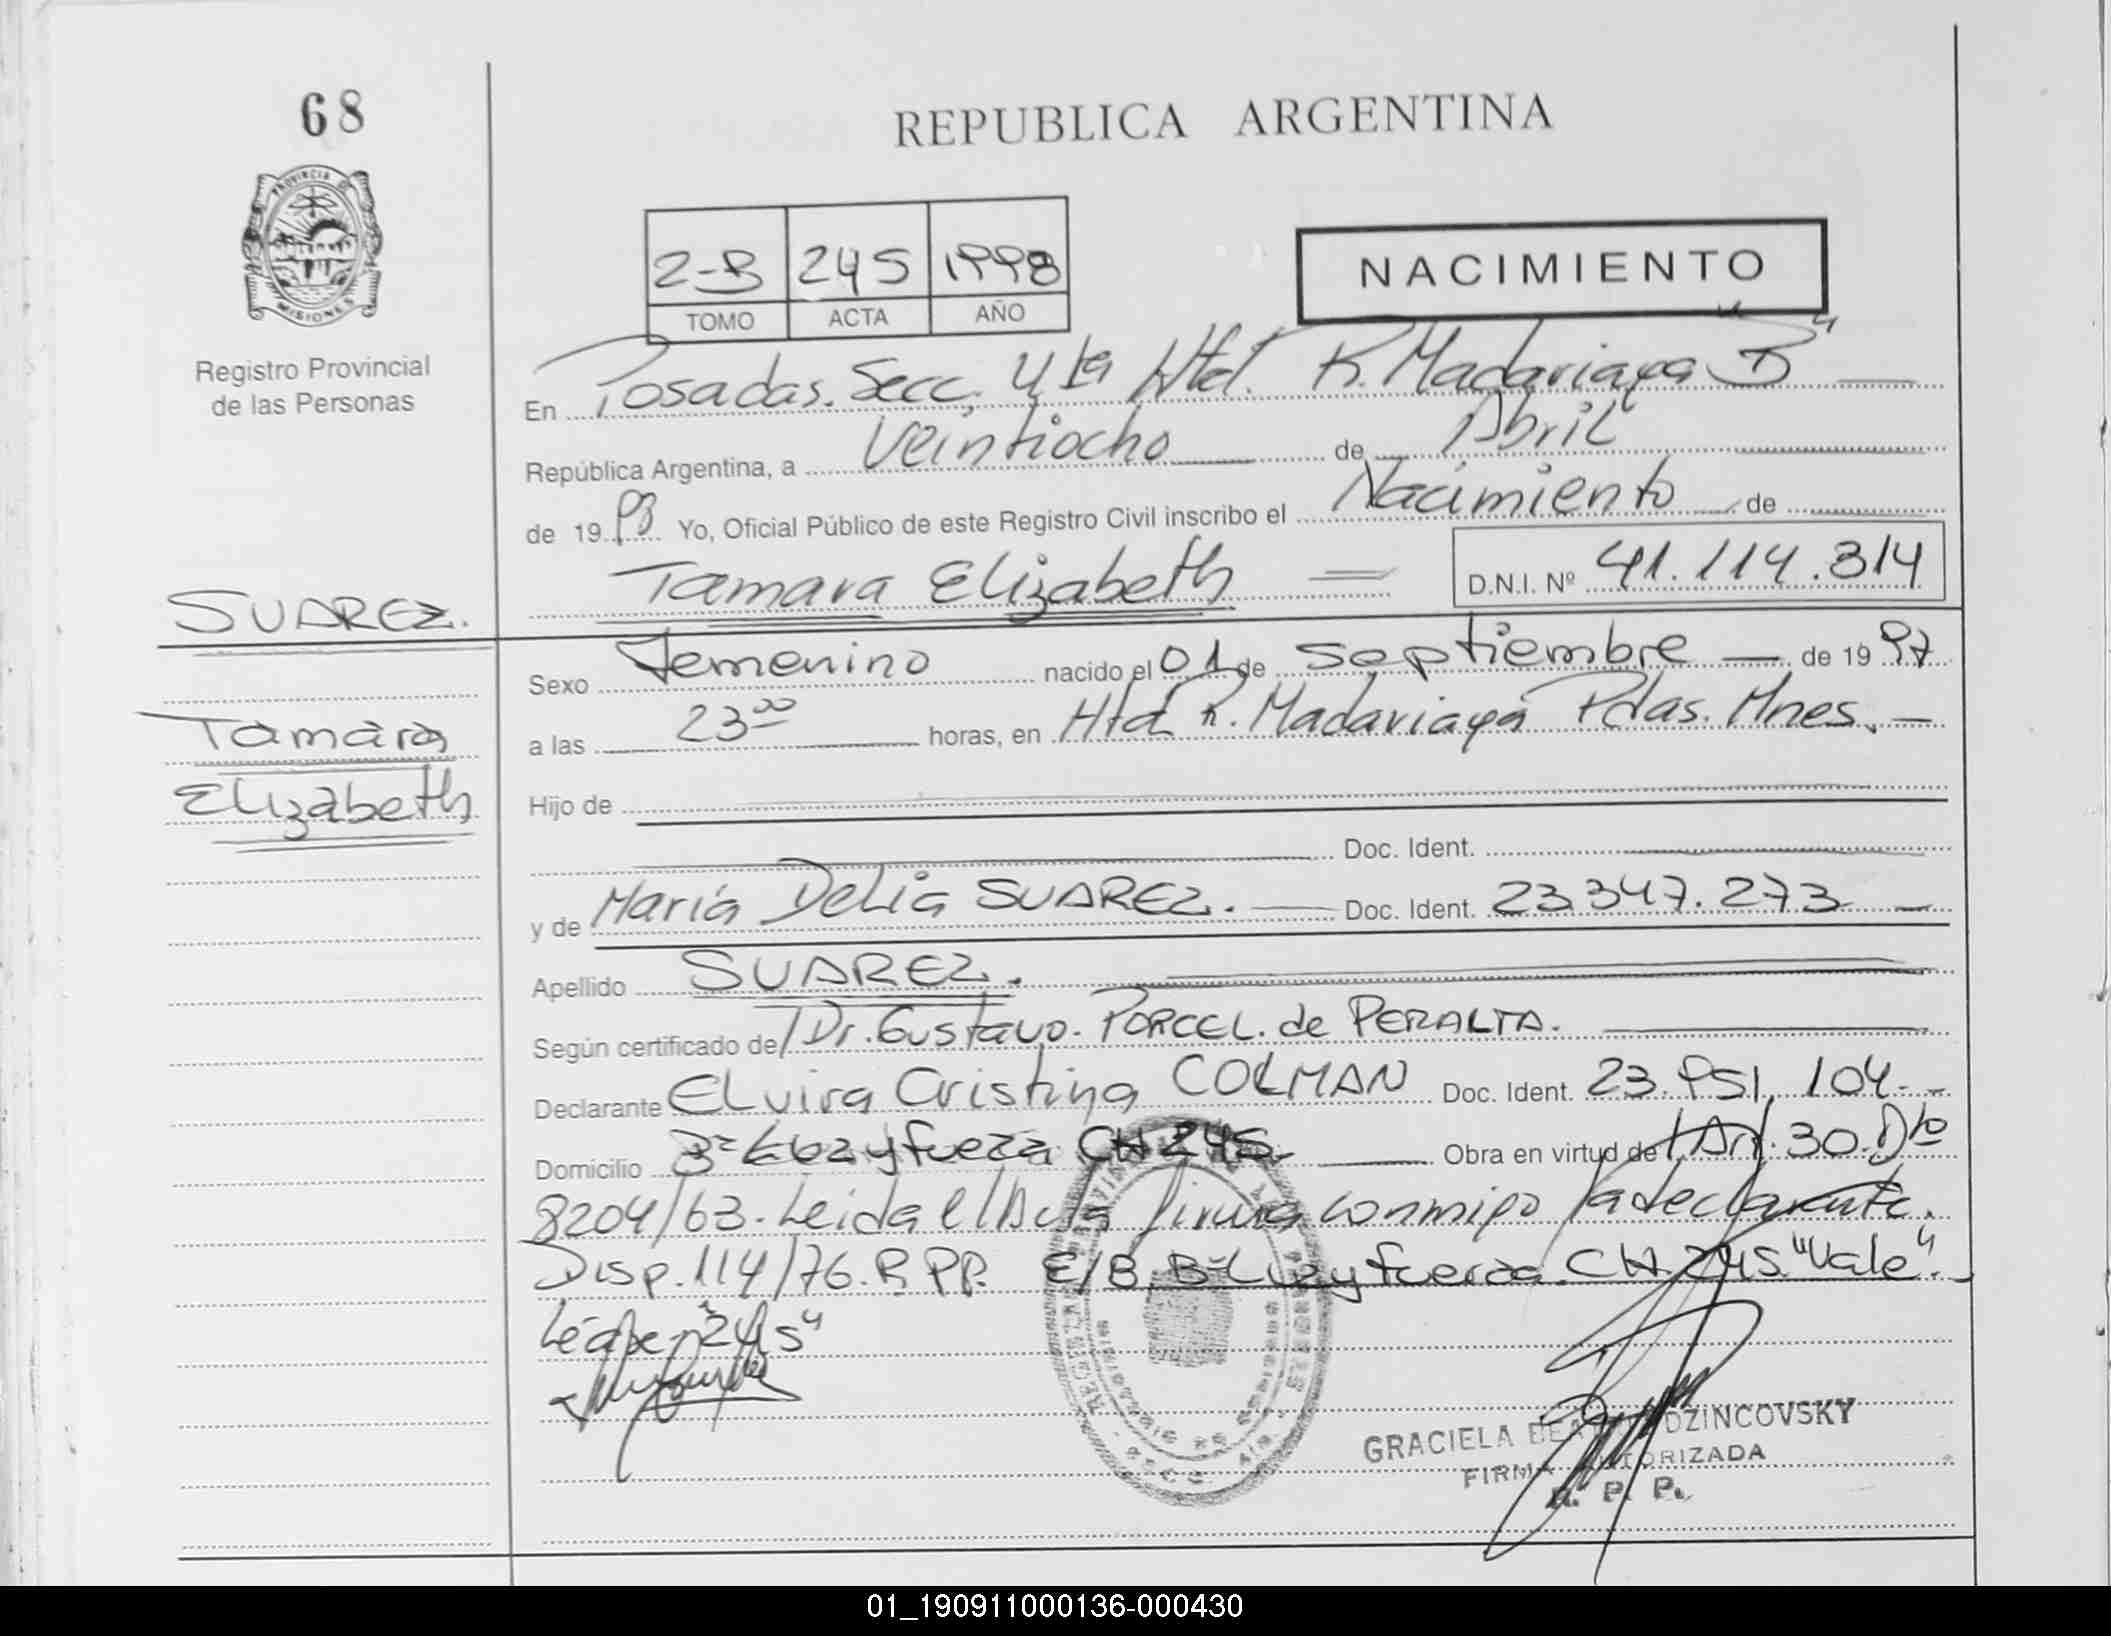 68
REPUBLICA ARGENTINA
PROVINCIA DE
MISIONES
Registro Provincial
de las Personas
2-B 245 1998
TOMO ACTA AÑO
NACIMIENTO
En Posadas. Secc. 4ta Htal. R. Madariaga "B"
República Argentina, a veintiocho de Abril
de 1998 Yo, Oficial Público de este Registro Civil inscribo el Nacimiento de
Tamara Elizabeth D.N.I. Nº 41.114.314
SUAREZ.
Tamara
Elizabeth
Sexo Femenino nacido el 01 de septiembre de 1997
a las 23 00 horas, en Htal R. Madariaga Pdas. Mnes.
Hijo de
Doc. Ident.
y de María Delia SUAREZ. Doc. Ident. 23.347.273
Apellido SUAREZ.
Según certificado de Dr. Gustavo. PORCEL. de PERALTA.
Declarante Elvira Cristina COLMAN Doc. Ident. 23.951.104.
Domicilio Bº Luz y fuerza CH 245. Obra en virtud de Art. 30. Dto
8204/63. Leida el Acta firma conmigo la declarante.
Disp. 114/76. R.P.P. E/B. Bº Luz y fuerza. CH. 245. "Vale".
Léase "245"
GRACIELA DZINCOVSKY
FIRMA AUTORIZADA
R. P. P.
01_190911000136-000430